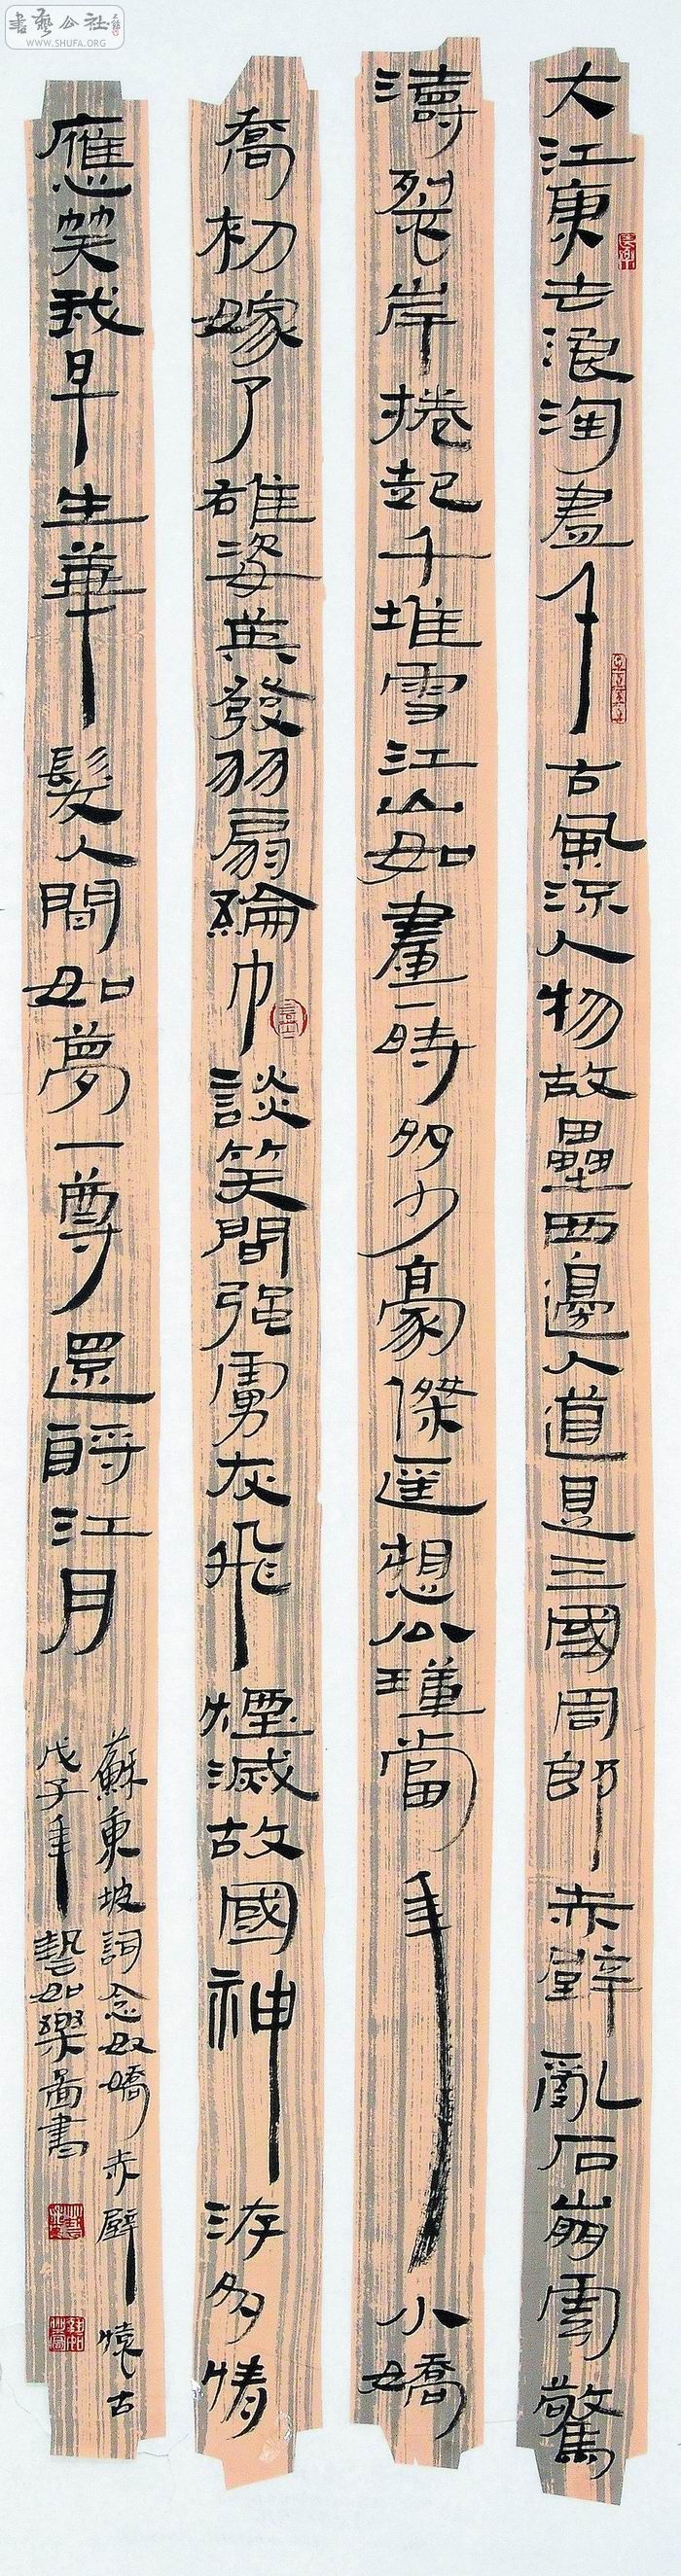 書藝公社
WWW.SHUFA.ORG
大江東去浪淘盡千古風流人物故壘西邊人道是三國周郎赤壁亂石崩雲驚
濤裂岸捲起千堆雪江山如畫一時多少豪傑遙想公瑾當年小嬌
喬初嫁了雄姿英發羽扇綸巾談笑間強虜灰飛煙滅故國神游多情
應笑我早生華髮人間如夢一尊還酹江月
蘇東坡詞念奴嬌赤壁懷古
戊子年如樂圖書